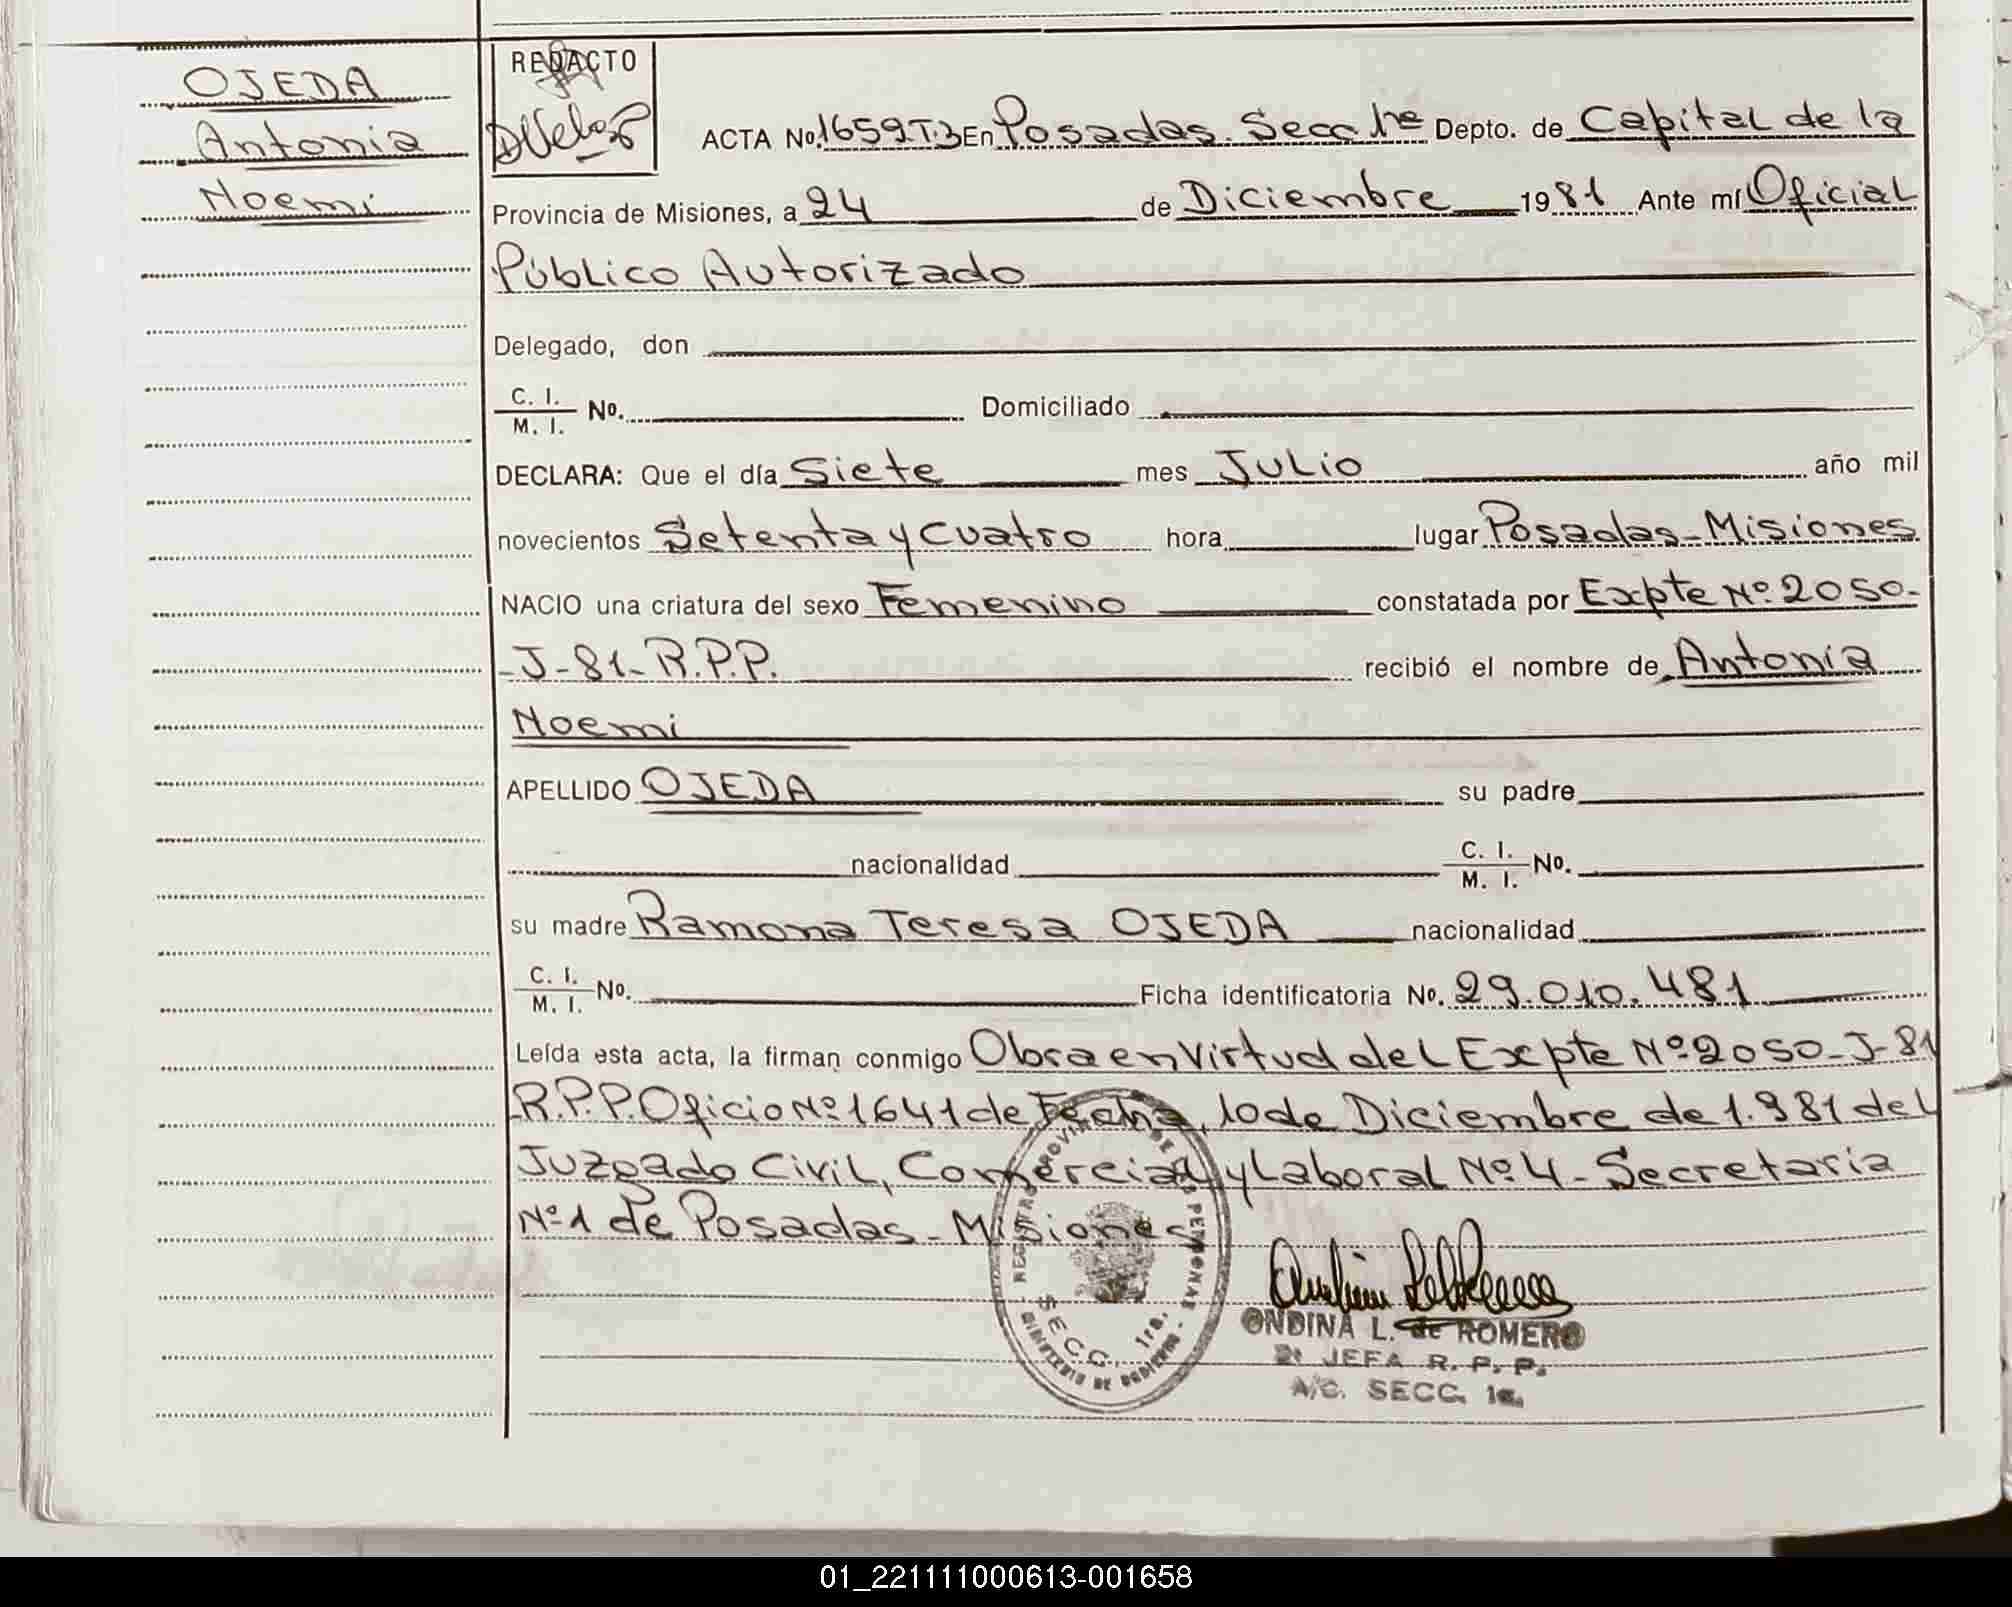 OJEDA
Antonia
Noemi
REDACTO
ACTA No. 1659.T.3 En Posadas. Secc 1ra Depto. de Capital de la
Provincia de Misiones, a 24 de Diciembre 1981 Ante mí Oficial
Público Autorizado
Delegado, don
C. I.
M. I. No. Domiciliado
DECLARA: Que el día Siete mes Julio año mil
novecientos Setenta y Cuatro hora lugar Posadas-Misiones
NACIO una criatura del sexo Femenino constatada por Expte Nº 2050-
-J-81-R.P.P. recibió el nombre de Antonia
Noemi
APELLIDO OJEDA su padre
nacionalidad C. I.
M. I. No.
su madre Ramona Teresa OJEDA nacionalidad
C. I.
M. I. No. Ficha identificatoria No. 29.010.481
Leída esta acta, la firman conmigo Obra en Virtud del Expte Nº 2050-J-81
R.P.P. Oficio Nº 1641 de Fecha, 10 de Diciembre de 1.981 del
Juzgado Civil, Comercial y Laboral Nº 4 - Secretaria
Nº 1 de Posadas - Misiones
REGISTRO PROVINCIAL DE LAS PERSONAS
SECC. 1ra.
MINISTERIO DE GOBIERNO
ONDINA L. de ROMERO
2ª JEFA R. P. P.
A/C. SECC. 1a.
01_221111000613-001658